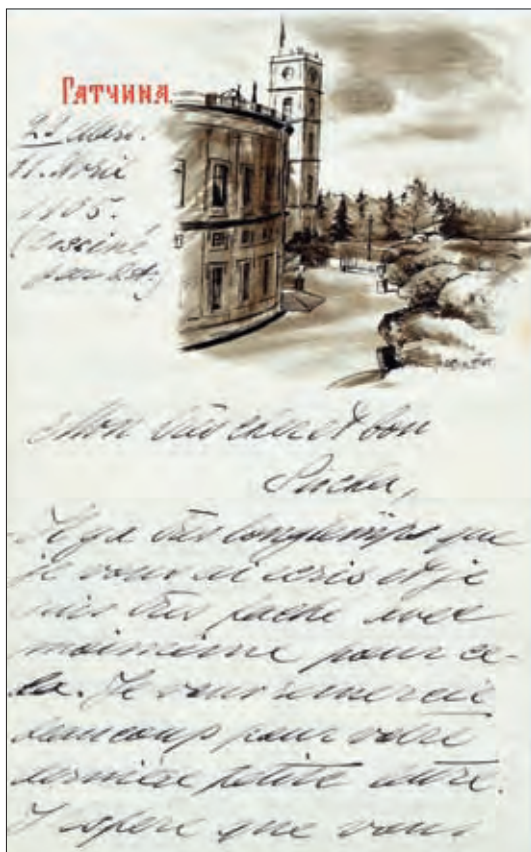 Гатчина.
22 Mars.
11. Avril
1905.
(Dessiné
par
Mon très cher et bon
Pacha,
Il y a très longtemps que
je vous ai ecris et je
suis très faché avec
moimême pour ce-
la. Je vous remercie
beaucoup pour votre
dernière petite
J'espere que vous